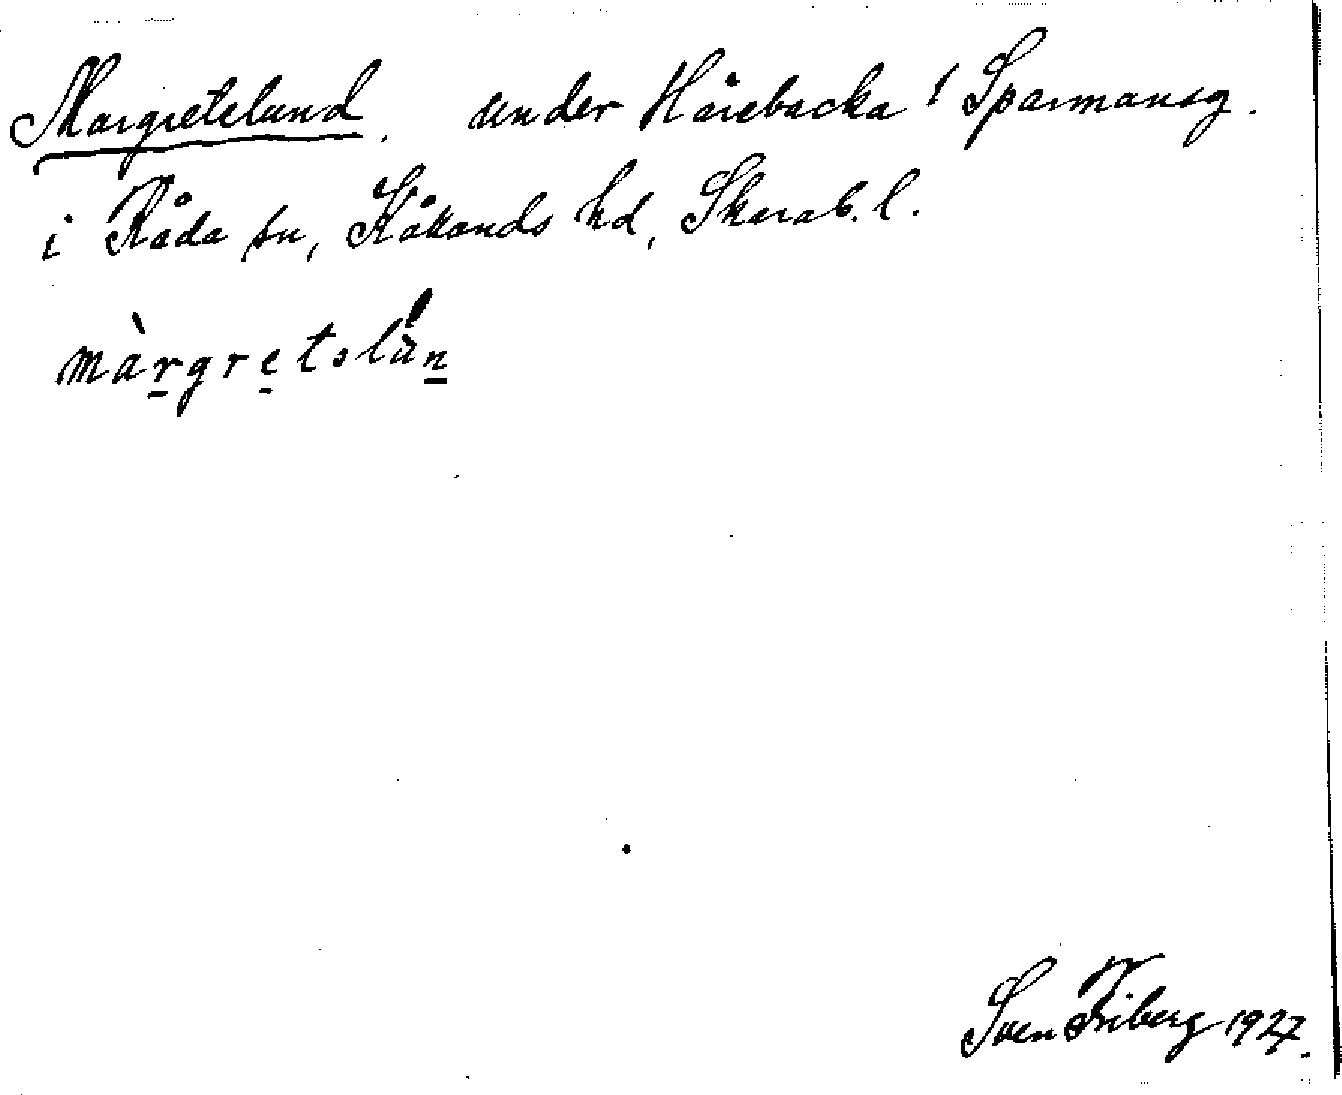 Margretelund. under Hårebacka 1 Sparmansg.
i Råda sn, Kållands hd, Skarab. l.
màrgretslån
Sven Friberg 1927.